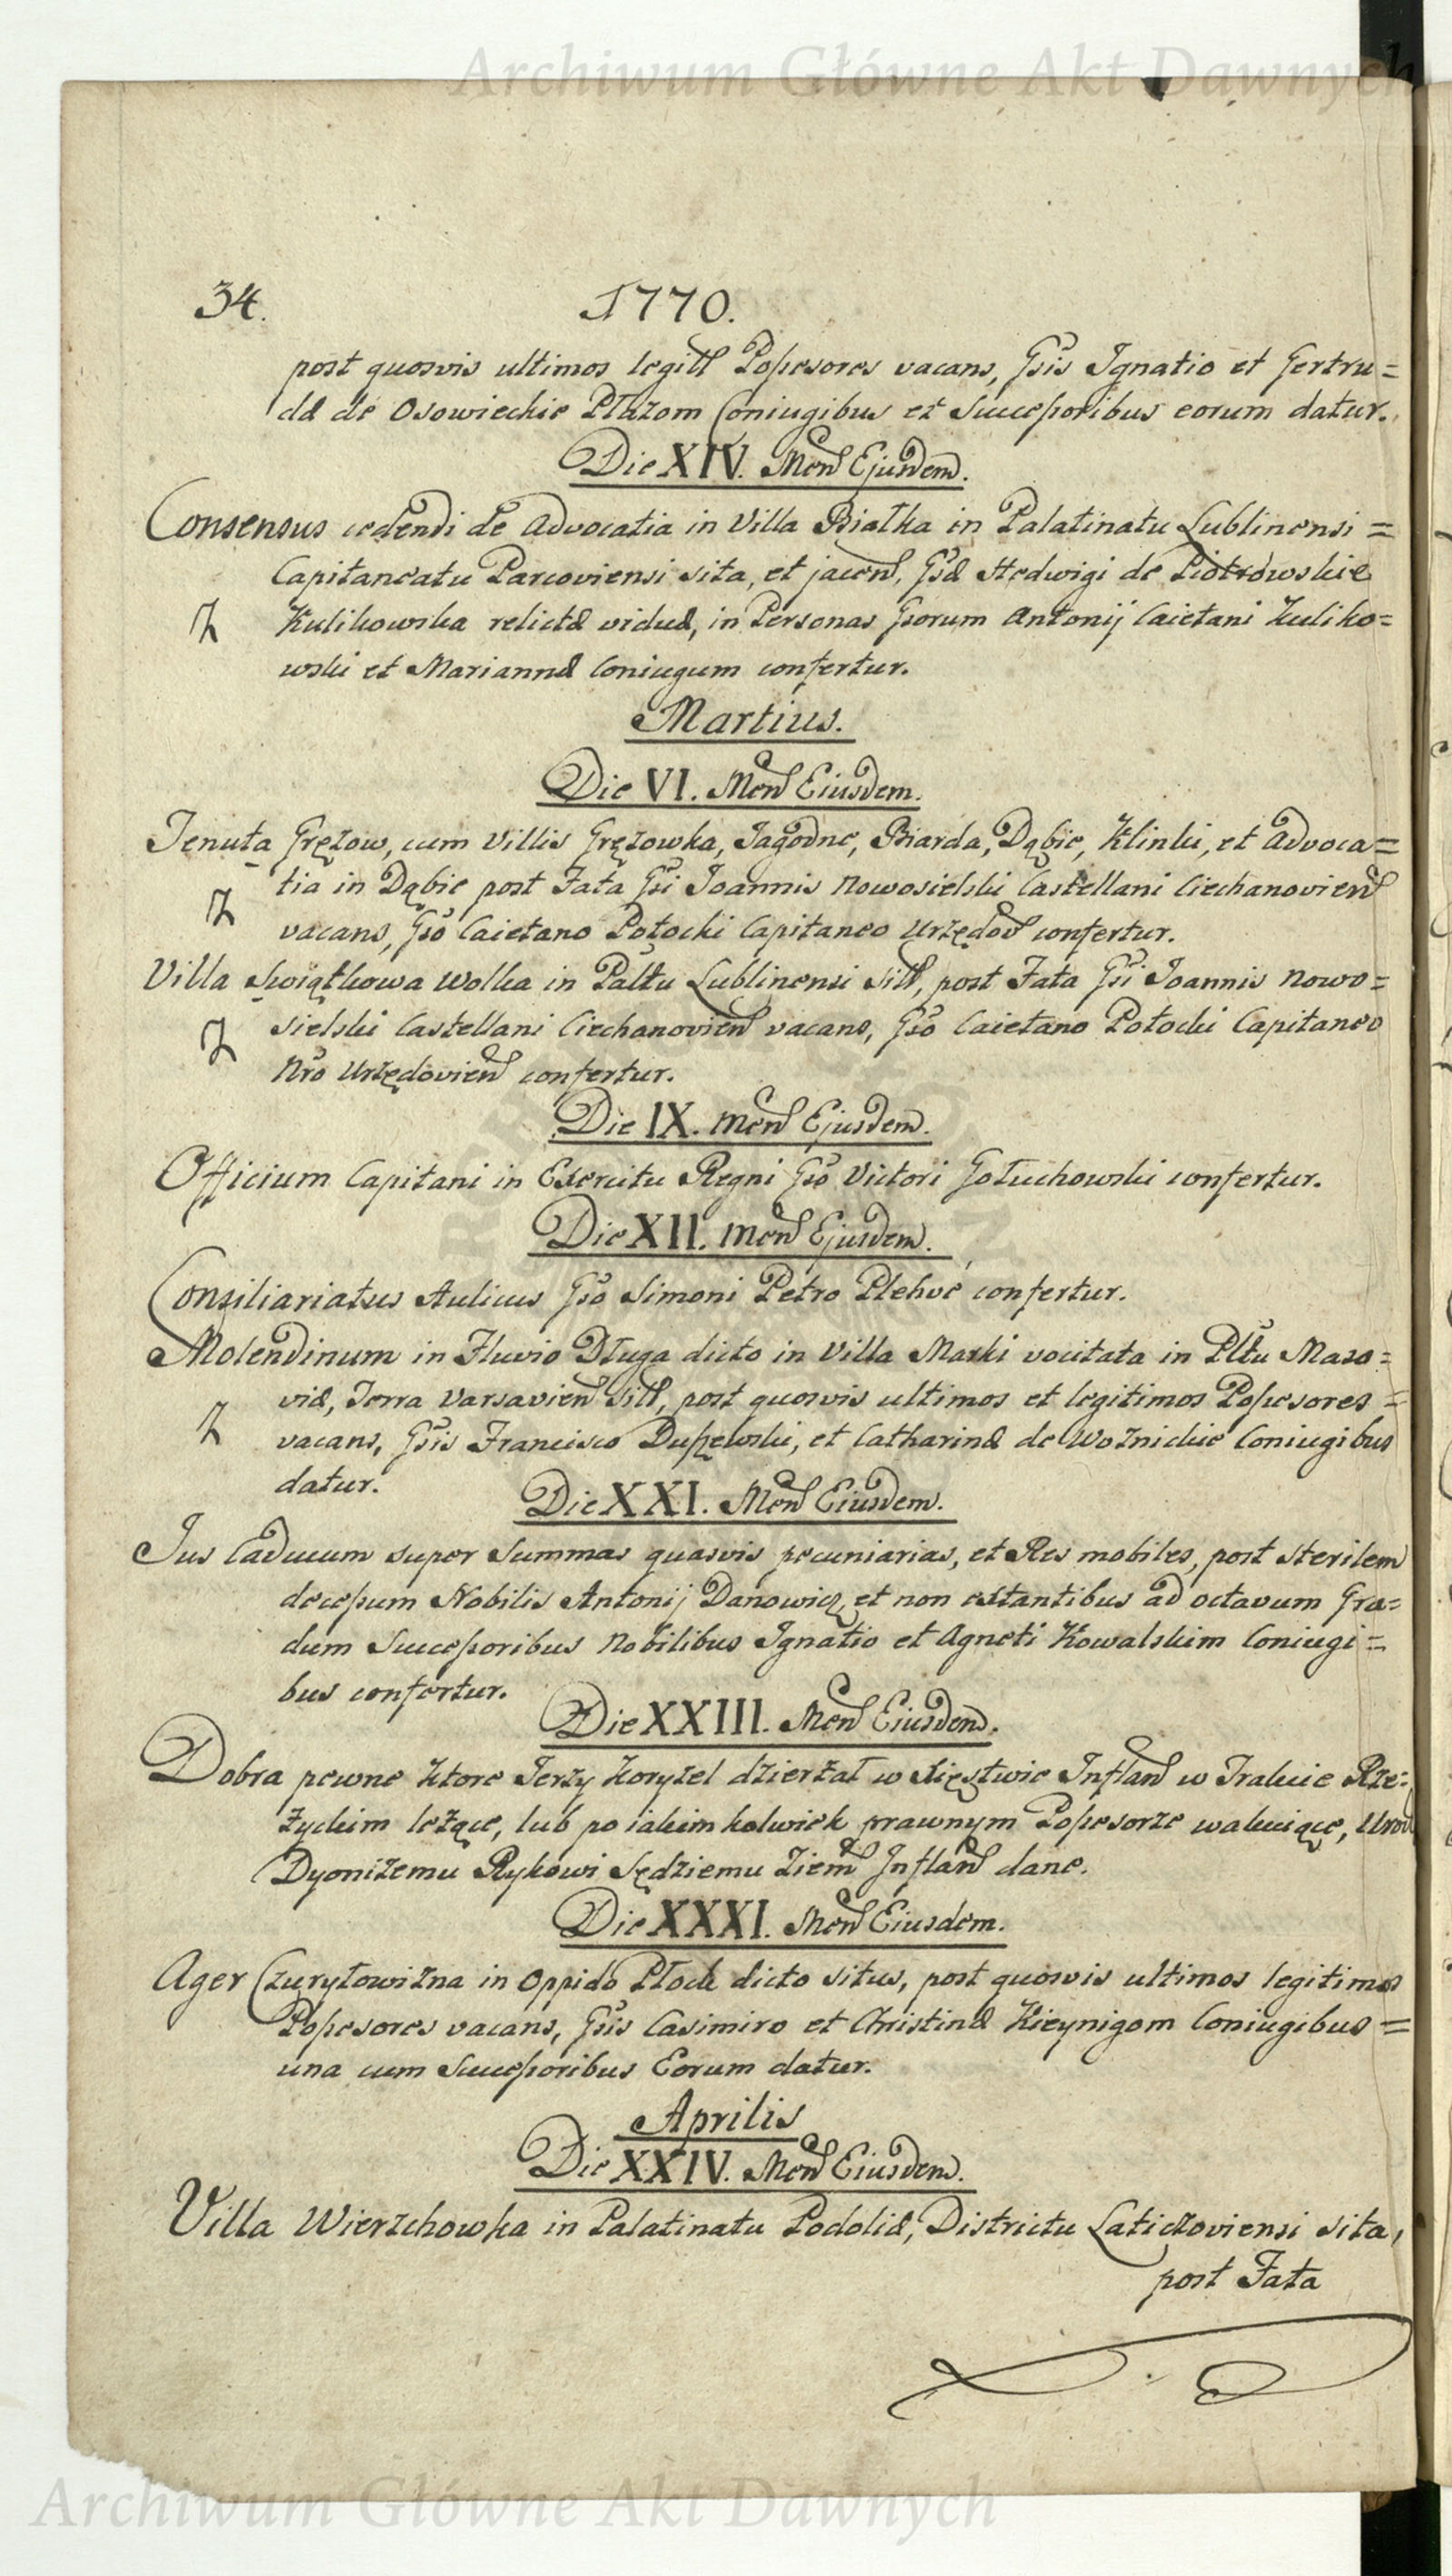 Archiwum Główne Akt Dawnych
34. 1770.
post quosvis ultimos legitt Possesores vacans, Gsis Ignatio et Gertru=
dæ de Osowieckie Płazom Coniugibus et Successoribus eorum datur.
Die XIV. Men Ejusdem.
Consensus cedendi de Advocatia in Villa Białka in Palatinatu Lublinensi =
Capitaneatu Parcoviensi sita, et jacen, Gsæ Hedwigi de Piotrowskie
Kulikowska relictæ viduæ, in Personas Gsorum Antonij Caietani Kuliko=
wski et Mariannæ Coniugum confertur.
Martius.
Die VI. Men Eiusdem.
Tenuta Gręzow, cum Villis Gręzowka, Jagodne, Biarda, Dąbie, Klimki, et Advoca=
tia in Dąbie post Fata Gsi Joannis Nowosielski Castellani Ciechanovien
vacans, Gso Caietano Potocki Capitaneo Urzędov confertur.
Villa Swiątkowa Wolka in Paltu Lublinensi sitt, post Fata Gsi Joannis Nowo=
sielski Castellani Ciechanovien vacans, Gso Caietano Potocki Capitaneo
Nro Urzędovien confertur.
Die IX. Men Ejusdem.
Officium Capitani in Exercitu Regni Gso Victori Gołuchowski confertur.
Die XII. Men Ejusdem.
Consiliariatus Aulicus Gso Simoni Petro Plehwe confertur.
Molendinum in Fluvio Długa dicto in Villa Marki vocitata in Pltu Mazo=
viæ, Terra Varsavien sitt, post quosvis ultimos et legitimos Possesores =
vacans, Gsis Francisco Dupęwski, et Catharinæ de Woznickie Coniugibus
datur.
Die XXI. Men Eiusdem.
Jus Caducum super Summas quasvis pecuniarias, et Res mobiles, post sterilem
decessum Nobilis Antonij Danowicz, et non extantibus ad octavum Gra=
dum Successoribus Nobilibus Ignatio et Agneti Kowalskim Coniugi=
bus confertur.
Die XXIII. Men Eiusdem.
Dobra pewne ktore Jerzy Koryzel dzierżał w Xięstwie Inflan w Trakcie Rze=
życkim leżące, lub po iakimkolwiek prawnym Possesorze wakuiące, Urod
Dyonizemu Rykowi Sędziemu Ziem Inflan dane.
Die XXXI. Men Eiusdem.
Ager Czuryłowizna in Oppido Płock dicto situs, post quosvis ultimos legitimos
Possesores vacans, Gsis Casimiro et Christinæ Kieynigom Coniugibus =
una cum Successoribus Eorum datur.
Aprilis
Die XXIV. Men Eiusdem.
Villa Wierzchowka in Palatinatu Podoliæ, Districtu Laticzoviensi sita,
post Fata
Archiwum Główne Akt Dawnych